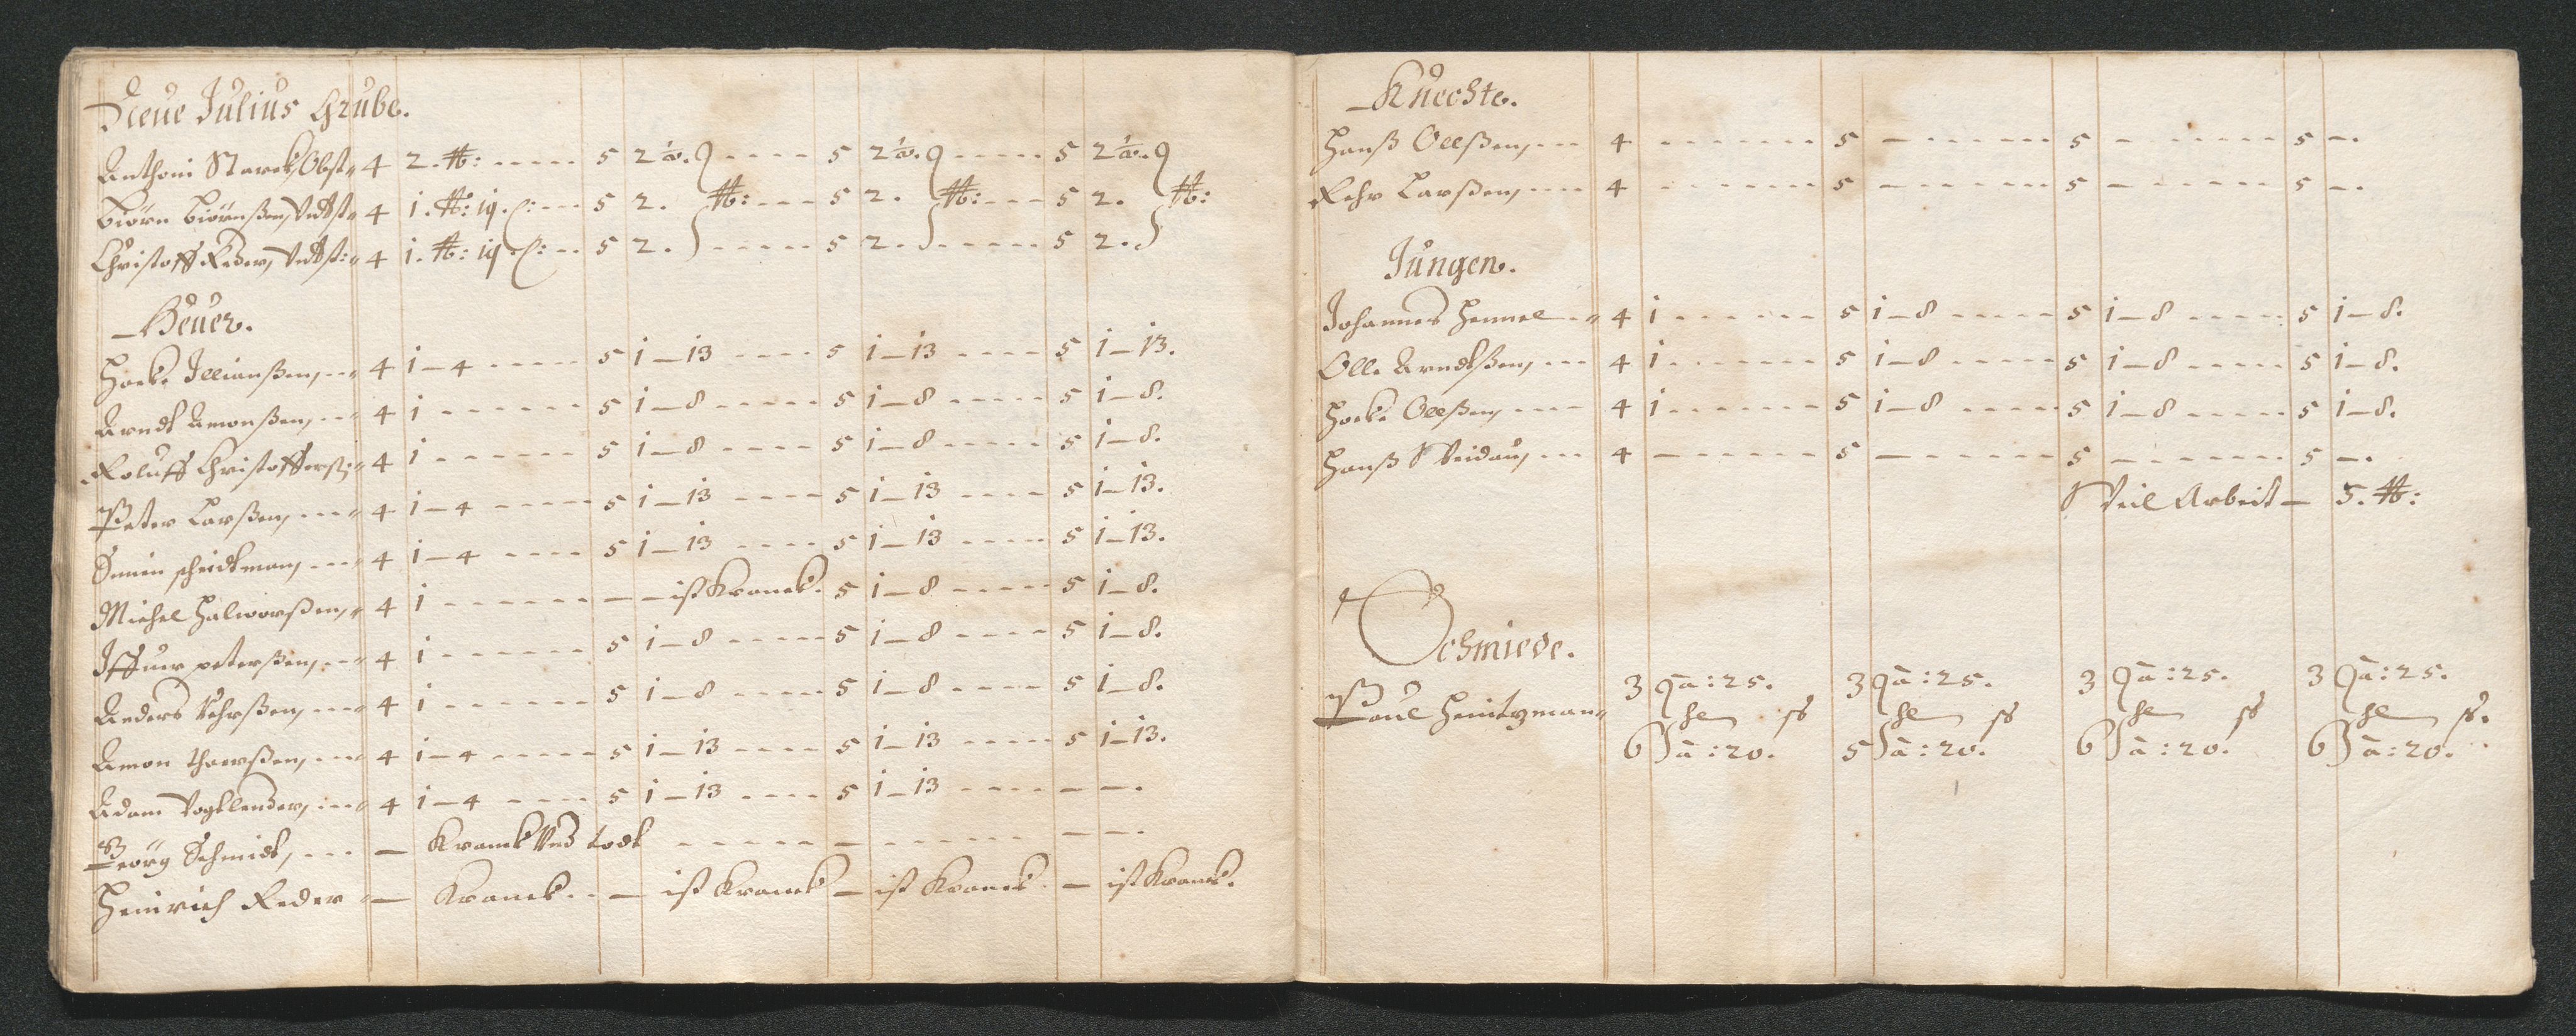 Neue Julius Grube.
Anthoni Starck, Obst: 4 2. ℔: ----- 5 2½. ---- 5 2½. ----- 5 2½.
Biörn Biörnßen, Undtst: 4 1. ℔: 19. ß: --- 5 2. ℔: --- 5 2. ℔: --- 5 2. ℔:
Christoff Reder, Undtst: 4 1. ℔: 19 ß: -- 5 2. ----- 5 2. ----- 5 2.
Heuer.
Hocke Illianßen, 4 1-4 ----- 5 1-13 ---- 5 1-13 ---- 5 1-13.
Arndt Amonßen, 4 1 ------ 5 1-8 ----- 5 1-8 ----- 5 1-8.
Roluff Christofferß: 4 1 ------ 5 1-8 ----- 5 1-8 ----- 5 1-8.
Peter Larßen, 4 1-4 ----- 5 1-13 ---- 5 1-13 ---- 5 1-13.
Simin scheidtman, 4 1-4 ---- 5 1-13 ---- 5 1-13 ---- 5 1-13.
Michel Halworßen, 4 1 ------ - - ist Kranck. 5 1-8 ----- 5 1-8.
Iffuer peterßen, 4 1 ------ 5 1-8 ----- 5 1-8 ---- 5 1-8.
Anders Rehrßen, 4 1 ------ 5 1-8 ----- 5 1-8 ---- 5 1-8.
Amon thorßen, 4 1-4 ----- 5 1-13 ---- 5 1-13 ----- 5 1-13.
Adam Vogtlender, 4 1-4 ---- 5 1-13 ---- 5 1-13 ---- - -.
Georg Schmidt, --- - Kranck Und todt ----- - ----- - -.
Heinrich Reder - Kranck. - ist Kranck - ist Kranck - ist Kranck.
Knechte.
Hanß Olßen, --- 4 ------ 5 ------ 5 ------ 5 -.
Rehr Larßen, --- 4 ------ 5 ------ 5 ------ 5 -.
Jungen.
Johannes Hemmel -- 4 1 ------ 5 1-8 ----- 5 1-8 ----- 5 1-8.
Olle Arndtßen, --- 4 1 ------ 5 1-8 ----- 5 1-8 ----- 5 1-8.
Hocke Olßen, ---- 4 1 ------ 5 1-8 ----- 5 1-8 ----- 5 1-8.
Hanß Weidau, --- 4 ------ 5 ------ 5 ------ 5 -.
Weil Arbeit - 5. ℔:
Schmiede.
Paul Heintzman 3 à: 25. 3 à: 25. 3 à: 25. 3 à: 25.
ß ß ß ß.
6 à: 20. 5 à: 20. 6 à: 20. 6 à: 20.